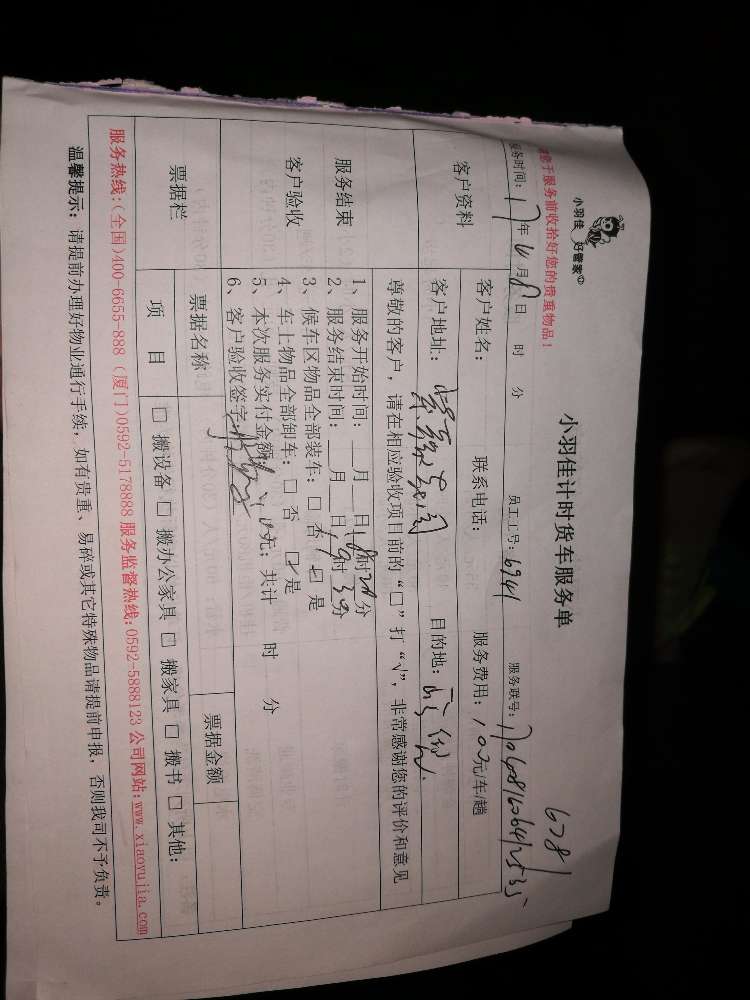 小羽佳 好管家
意于服务前收拾好您的贵重物品!
小羽佳计时货车服务单
6781
服务时间: 17年6月8日 时 分 员工工号: 6941 服务联号:
客户资料
客户姓名: 联系电话: 服务费用: 100元/车/趟
客户地址: 目的地:
服务结束
客户验收
尊敬的客户, 请在相应验收项目前的“□”打“√”, 非常感谢您的评价和意见
1、服务开始时间: 月 日18时20分
2、服务结束时间: 月 日19时30分
3、候车区物品全部装车: □ 否 ☑ 是
4、车上物品全部卸车: □ 否 ☑ 是
5、本次服务实付金额: 元; 共计 时 分
6、客户验收签字:
票据栏
票据名称 票据金额
项 目 □ 搬设备 □ 搬办公家具 □ 搬家具 □ 搬书 □ 其他:
服务热线:(全国)400-6655-888 (厦门)0592-5178888 服务监督热线:0592-5888123 公司网站:www.xiaoyujia.com
温馨提示: 请提前办理好物业通行手续, 如有贵重、易碎或其它特殊物品请提前申报, 否则我司不予负责。